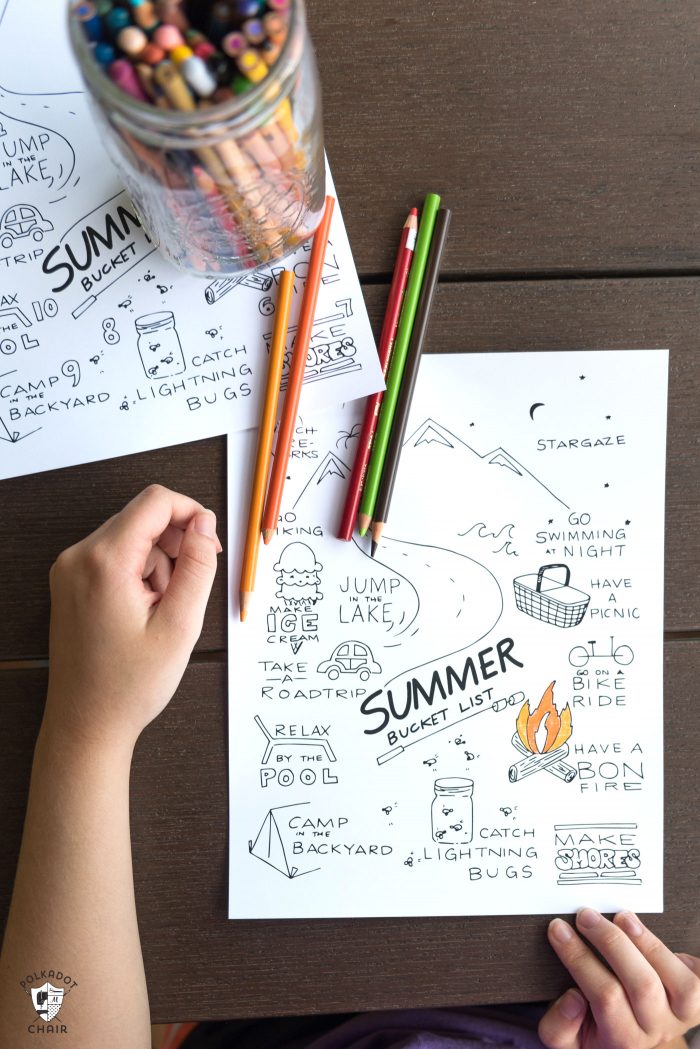 JUMP
IN THE
LAKE
TRIP
SUMM
BUCKET LIST
RELAX
BY THE 10
POOL
8
CATCH
LIGHTNING
BUGS
CAMP 9
IN THE
BACKYARD
BON
6
7
MAKE
SMORES
STARGAZE
GO
HIKING
GO
SWIMMING
AT NIGHT
JUMP
IN THE
LAKE
MAKE
ICE
CREAM
HAVE
A
PICNIC
TAKE
A
ROADTRIP
SUMMER
BUCKET LIST
GO ON A
BIKE
RIDE
RELAX
BY THE
POOL
HAVE A
BON
FIRE
CAMP
IN THE
BACKYARD
CATCH
LIGHTNING
BUGS
MAKE
SMORES
POLKADOT
CHAIR